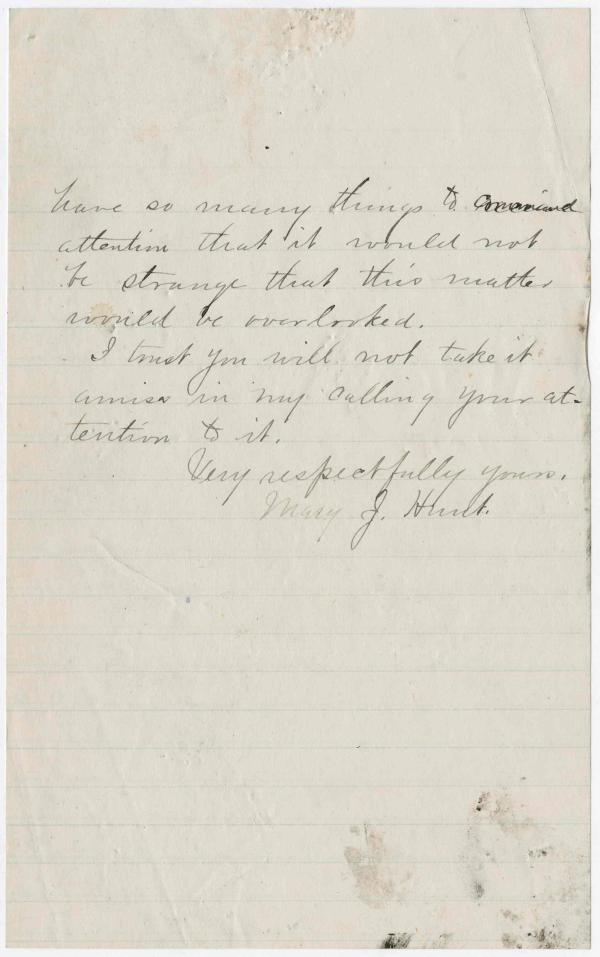 have so many things to command
attention that it would not
be strange that this matter
would be overlooked.
I trust you will not take it
amiss in my calling your at-
tention to it.
Very respectfully yours.
Mary J. Hunt.